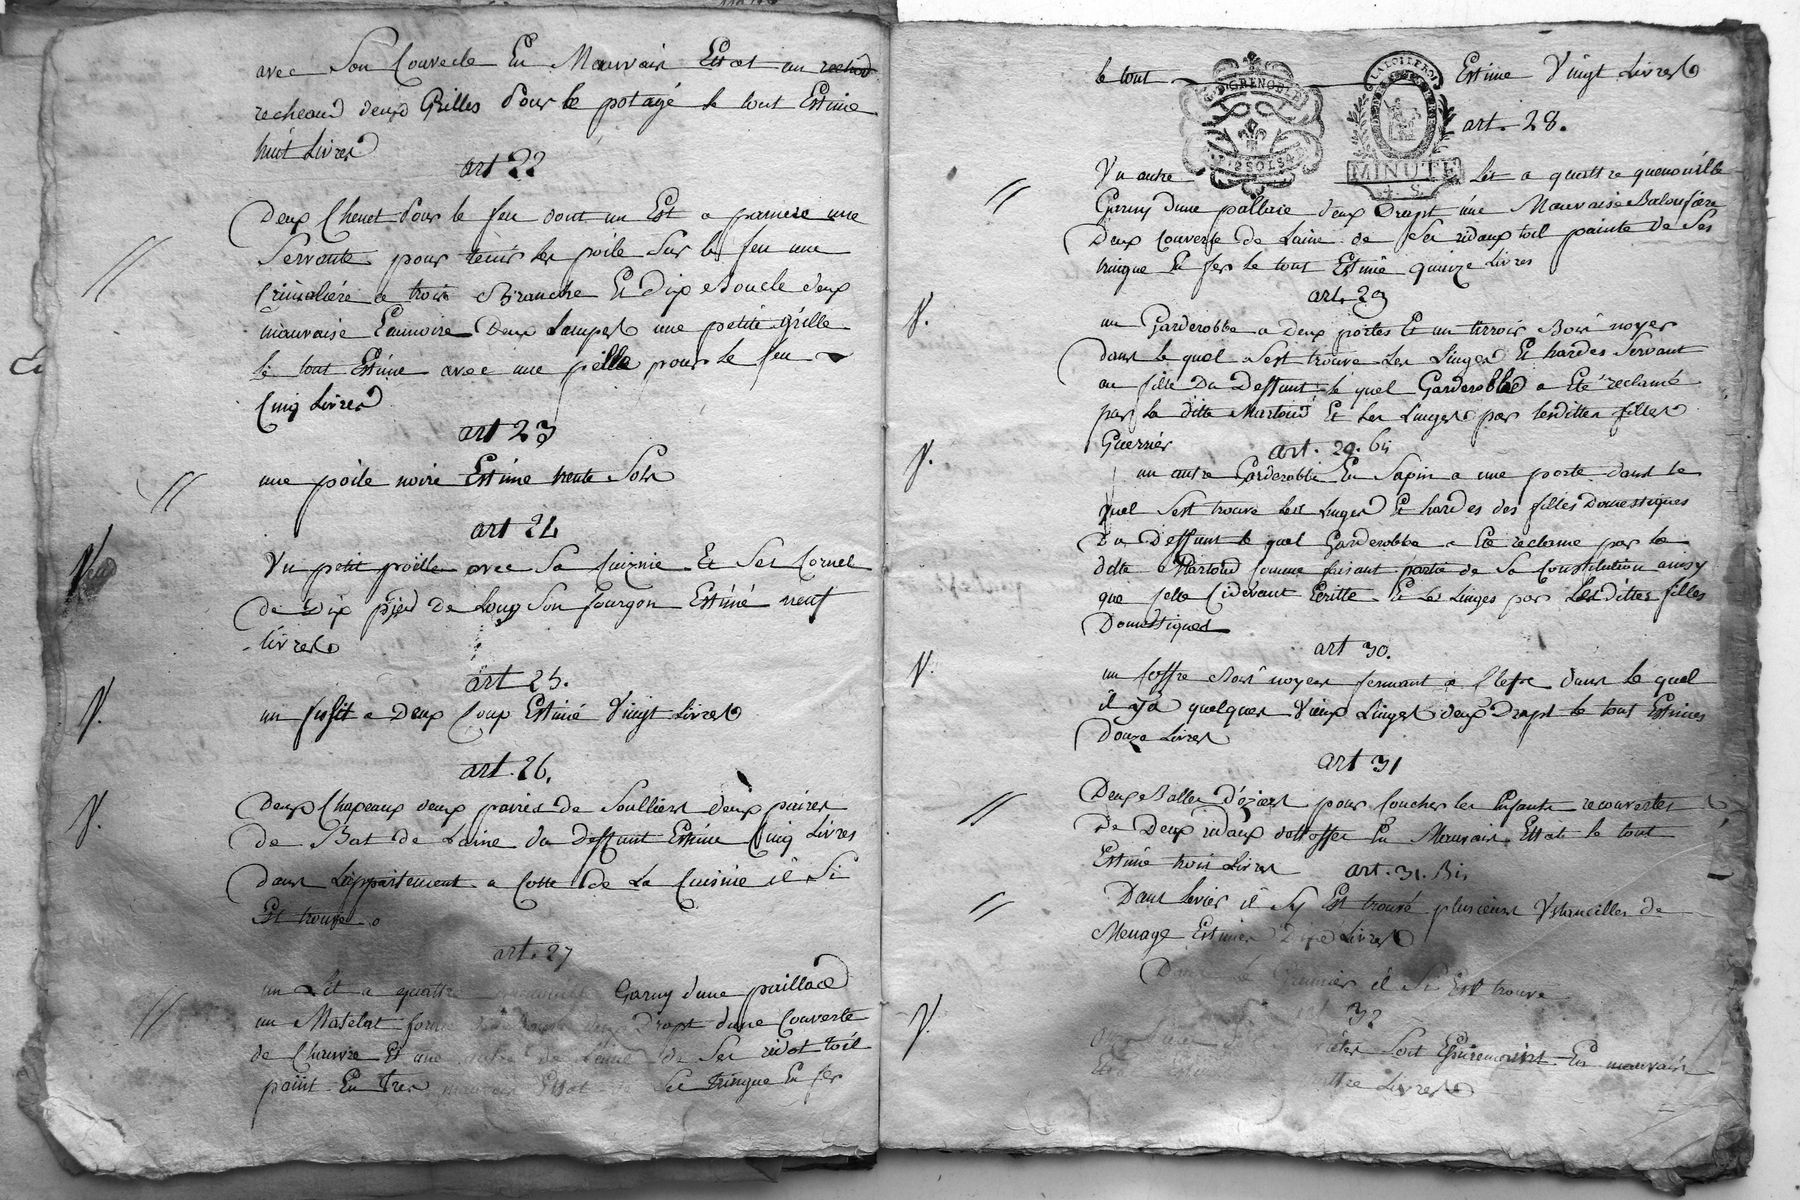 avec Son Couvecle En Mauvais Estat un rechod
recheaud deux Grilles Pour le potagé le tout Estimé
huit Livres
art 22
Deux Chenet Pour le feu dont un Est a une
Servante pour tenir les poile Sur le feu une
a trois Branche Et Dix Boucle deux
mauvaise Deux Lampes une petite Grille
le tout Estimé avec une pelle pour le feu
Cinq Livres
art 23
une poile noire Estimé trente Sols
art 24
Un petit poille avec Sa Et Ses Cornet
de Dix pied de Long Son fourgon Estimé neuf
Livres
art 25.
un fusit a Deux Coup Estimé Vingt Livres
art. 26.
Deux Chapeaux deux paires de Soulliers deux paires
de Bas de Laine du Deffunt Estimé Cinq Livres
Dans Lappartement a Coste de La Cuisine il Si
Est trouvé
art. 27
un Lit a quattre Garny dune paillace
un Matelat Drapt dune Couverte
de Chanvre Et une autre de Laine de Ses ridot toil
paint En tres mauvais Estat Se tringue En fer
le tout Estimé Vingt Livres
G. D GRENOBLE
2 SOLS 4 D
LA LOI LE ROI
MINUTE
4. S.
art. 28.
Un autre Lit a quattre quenouille
Garny dune pallace deux Drapt une Mauvaise Baloufiere
Deux Couverte de Laine de Ses ridaux toil painte de Ses
tringue En fer le tout Estimé quinze Livres
art. 29
un Garderobbe a Deux portes Et un tirroir Bois noyer
dans le quel Sest trouvé Les Linges Et hardes Servant
au fille Du Deffunt le quel Garderobbe a Eté reclamé
par la ditte Martoud Et Les Linges par lesdittes filles
Guerrier
art. 29. bis
un autre Garderobbe En Sapin a une porte dans le
quel Sest trouvé Les Linges Et hardes des filles Domestiques
Du Deffunt le quel Garderobbe a Eté reclamé par la
ditte Martoud Comme faisant partie de Sa Constitution ainsy
que Celle Cidevant Ecritte Et Les Linges par Lesdittes filles
Domestiques
art 30.
un Coffre Bois noyer fermant a Clefse dans le quel
il y a quelques Vieux Linges deux Drapt le tout Estimés
Douze Livres
art 31
Deux Balles D'oziers pour Coucher les Enfants recouvertes
de Deux ridaux En Mauvais Estat le tout
Estimé trois Livres
art. 31. Bis
Dans Levier il Sy Est trouvé plusieurs Ustancilles de
Menage Estimés Dix Livres
Dans Le Grenier il Si Est trouvé
32
En mauvais
quattre Livres